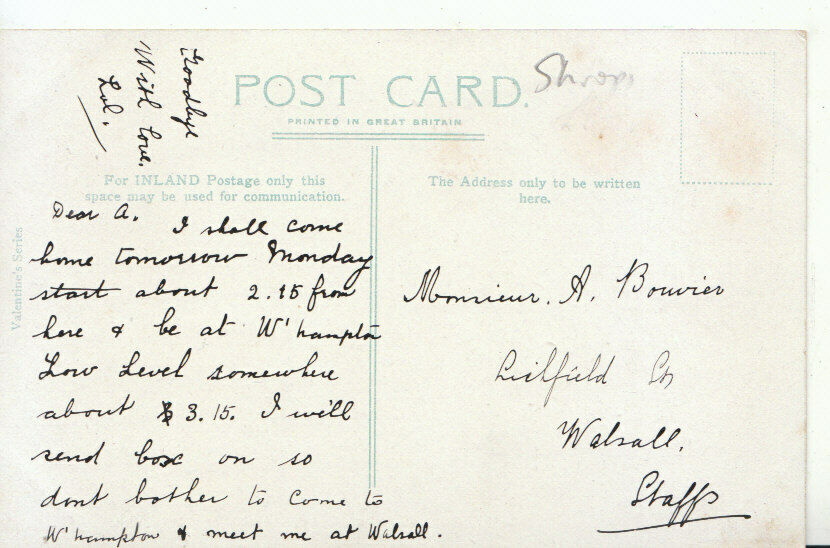 Goodbye
With love.
Lol.
POST CARD.
Shrops
PRINTED IN GREAT BRITAIN
For INLAND Postage only this
space may be used for communication.
The Address only to be written
here.
Valentine's Series
Dear A.
I shall come
home tomorrow Monday
start about 2.15 from
here & be at W'hampton
Low Level somewhere
about 3.15. I will
send box on so
dont bother to come to
W'hampton & meet me at Walsall.
Monsieur. A. Bouvier
Lichfield
Walsall.
Staffs